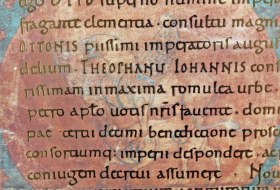 numine imper
fragante clementia. consultu magni
OTTONIS piissimi imperatoris augu
delium. THEOPHANU IOHANNIS cons
rissimam in maxima romulea urbe.
petro aplo uotis nris fauente. dom
pae tercii decimi benedictione prose
consortiumq; imperii despondere. ac
coniugem decreui assumere No